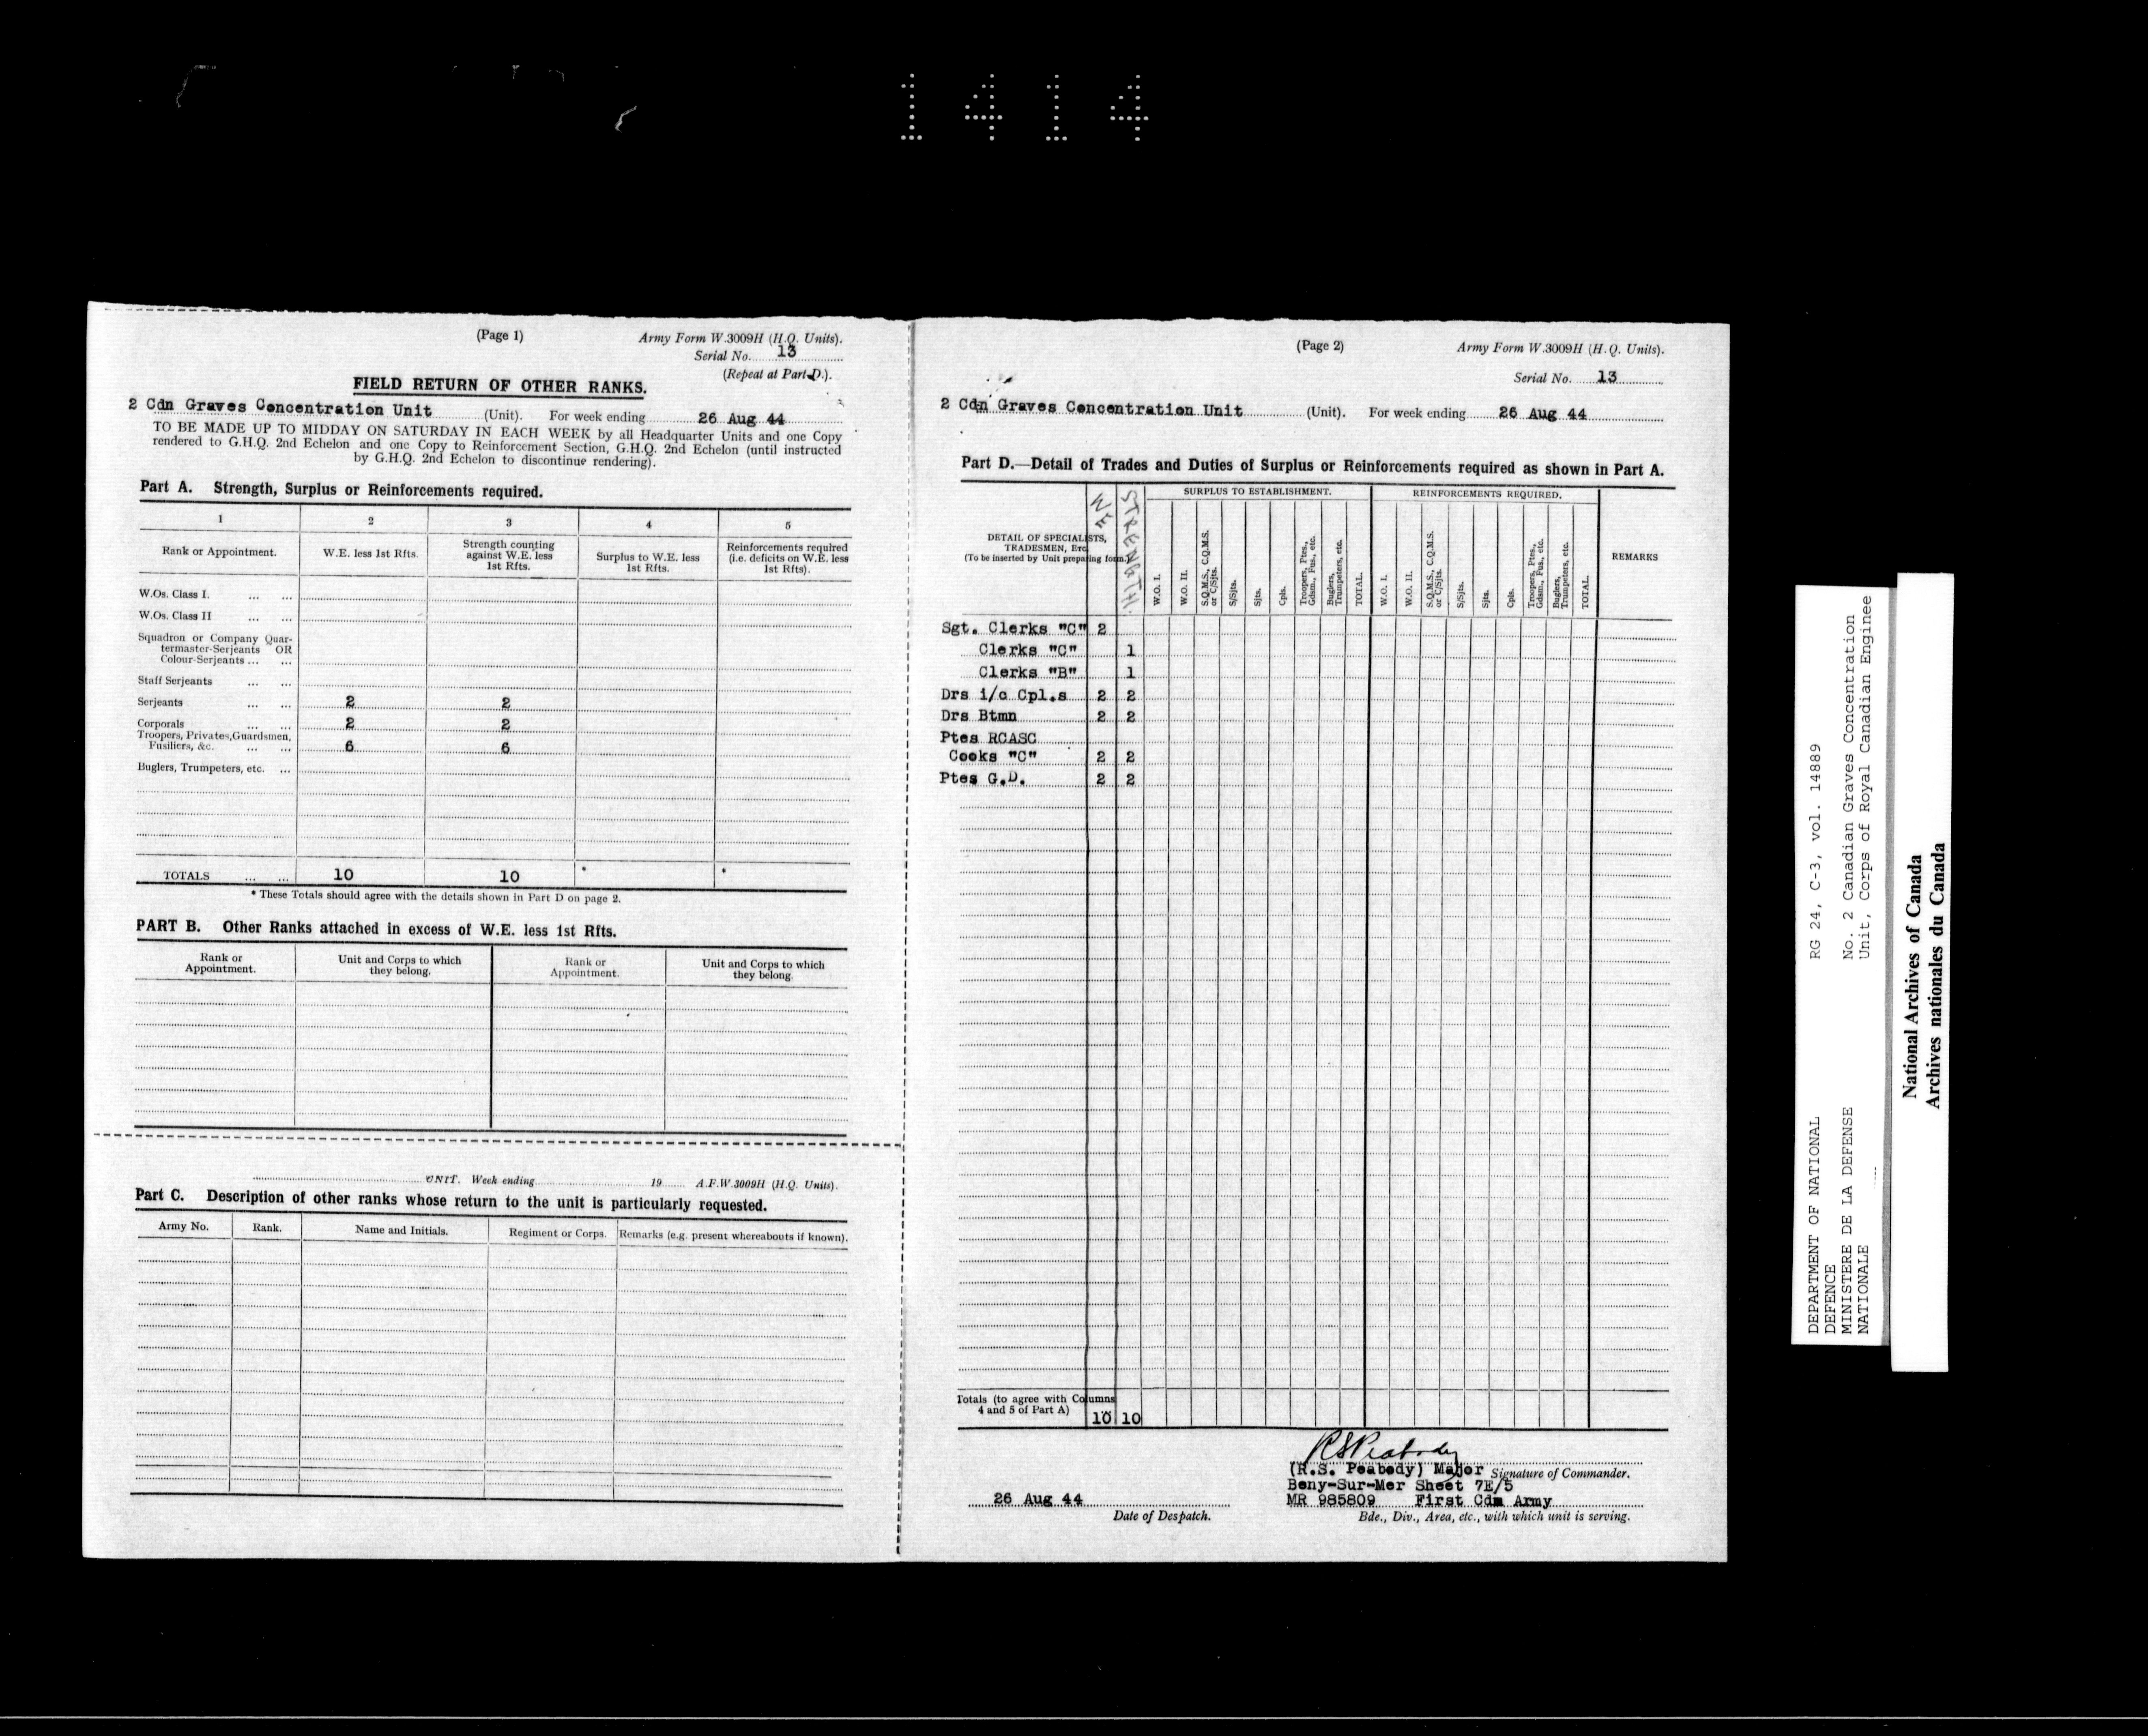 1414
(Page 1)
Army Form W.3009H (H.Q. Units).
Serial No. 13
(Repeat at Part D.).
FIELD RETURN OF OTHER RANKS.
2 Cdn Graves Concentration Unit (Unit). For week ending 26 Aug 44
TO BE MADE UP TO MIDDAY ON SATURDAY IN EACH WEEK by all Headquarter Units and one Copy
rendered to G.H.Q. 2nd Echelon and one Copy to Reinforcement Section, G.H.Q. 2nd Echelon (until instructed
by G.H.Q. 2nd Echelon to discontinue rendering).
Part A. Strength, Surplus or Reinforcements required.
1 2 3 4 5
Rank or Appointment. W.E. less 1st Rfts. Strength counting against W.E. less 1st Rfts. Surplus to W.E. less 1st Rfts. Reinforcements required (i.e. deficits on W.E. less 1st Rfts).
W.Os. Class I. ... ...
W.Os. Class II ... ...
Squadron or Company Quar-
termaster-Serjeants OR
Colour-Serjeants ... ...
Staff Serjeants ... ...
Serjeants ... ... 2 2
Corporals ... ... 2 2
Troopers, Privates, Guardsmen,
Fusiliers, &c. ... ... 6 6
Buglers, Trumpeters, etc. ...
TOTALS ... ... 10 10 * *
* These Totals should agree with the details shown in Part D on page 2.
PART B. Other Ranks attached in excess of W.E. less 1st Rfts.
Rank or Appointment. Unit and Corps to which they belong. Rank or Appointment. Unit and Corps to which they belong.
UNIT. Week ending 19 A.F.W.3009H (H.Q. Units).
Part C. Description of other ranks whose return to the unit is particularly requested.
Army No. Rank. Name and Initials. Regiment or Corps. Remarks (e.g. present whereabouts if known).
(Page 2)
Army Form W.3009H (H.Q. Units).
Serial No. 13
2 Cdn Graves Concentration Unit (Unit). For week ending 26 Aug 44
Part D.—Detail of Trades and Duties of Surplus or Reinforcements required as shown in Part A.
DETAIL OF SPECIALISTS,
TRADESMEN, Etc.
(To be inserted by Unit preparing form.)
WE
STRENGTH.
SURPLUS TO ESTABLISHMENT.
W.O. I. W.O. II. S.Q.M.S., C.Q.M.S. or C/Sjts. S/Sjts. Sjts. Cpls. Troopers, Ptes., Gdsm., Fus., etc. Buglers, Trumpeters, etc. TOTAL.
REINFORCEMENTS REQUIRED.
W.O. I. W.O. II. S.Q.M.S., C.Q.M.S. or C/Sjts. S/Sjts. Sjts. Cpls. Troopers, Ptes., Gdsm., Fus., etc. Buglers, Trumpeters, etc. TOTAL.
REMARKS
Sgt. Clerks "C" 2
Clerks "C" 1
Clerks "B" 1
Drs i/c Cpl.s 2 2
Drs Btmn 2 2
Ptes RCASC
Cooks "C" 2 2
Ptes G.D. 2 2
Totals (to agree with Columns
4 and 5 of Part A) 10 10
RSPeabody
(R.S. Peabody) Major Signature of Commander.
Beny-Sur-Mer Sheet 7E/5
26 Aug 44 MR 985809 First Cdn Army
Date of Despatch. Bde., Div., Area, etc., with which unit is serving.
DEPARTMENT OF NATIONAL
DEFENCE
MINISTERE DE LA DEFENSE
NATIONALE
RG 24, C-3, vol. 14889
No. 2 Canadian Graves Concentration
Unit, Corps of Royal Canadian Enginee
National Archives of Canada
Archives nationales du Canada